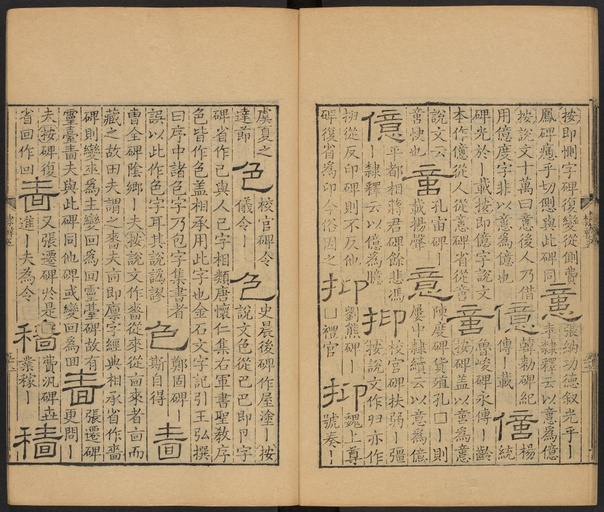 按即惻字碑復變從側費 張納功德叙光乎丨
鳳碑乎切與此碑同 意 隸釋云以意為億
按說文十萬曰意後人乃借 韓勑碑紀 楊
用億度字非以意為億也 億 傳丨載 億 統
碑光於丨載按即億字說文 魯峻碑永傳丨齡
本作億從人從意碑省從音 音 按碑蓋以音為意
說文云 意 孔宙碑丨 陳度碑貨殖孔丨則
音快也 載揚聲 意 屢中隸續云以意為億
億 平都相蔣君碑餘悲馮 校官碑扶弱丨彊
丨隸釋云以億為臆 抑 按說文作归亦作
抑從反印碑則不反他 劉熊碑丨 魏上尊
碑復省為印今俗因之 抑 □禮官 抑 號奏丨
虞夏之 校官碑令 史晨後碑作屋塗丨按
達節 色 儀令丨 色 說文色從巴巴即卪字
碑省作巳與人己字相類唐懷仁集右軍書聖教序
色皆作色蓋相承用此字也金石文字記引王弘撰
曰序中諸色字乃包字集書者 鄭固碑丨
誤以此作色字耳其說謬 色 斯自得 嗇
曹全碑陰鄉丨夫按說文作嗇從來從㐭來者㐭而
藏之故田夫謂之嗇夫㐭即廩字經典相承省作嗇
碑則變來為主變回為回靈臺碑故有 張遷碑
靈臺嗇夫與此碑同他碑或變回為田 嗇 更問丨
夫按碑復 又張遷碑於是 費汎碑垂
省回作曰 嗇 進丨夫為令 穡 業稼丨 穡